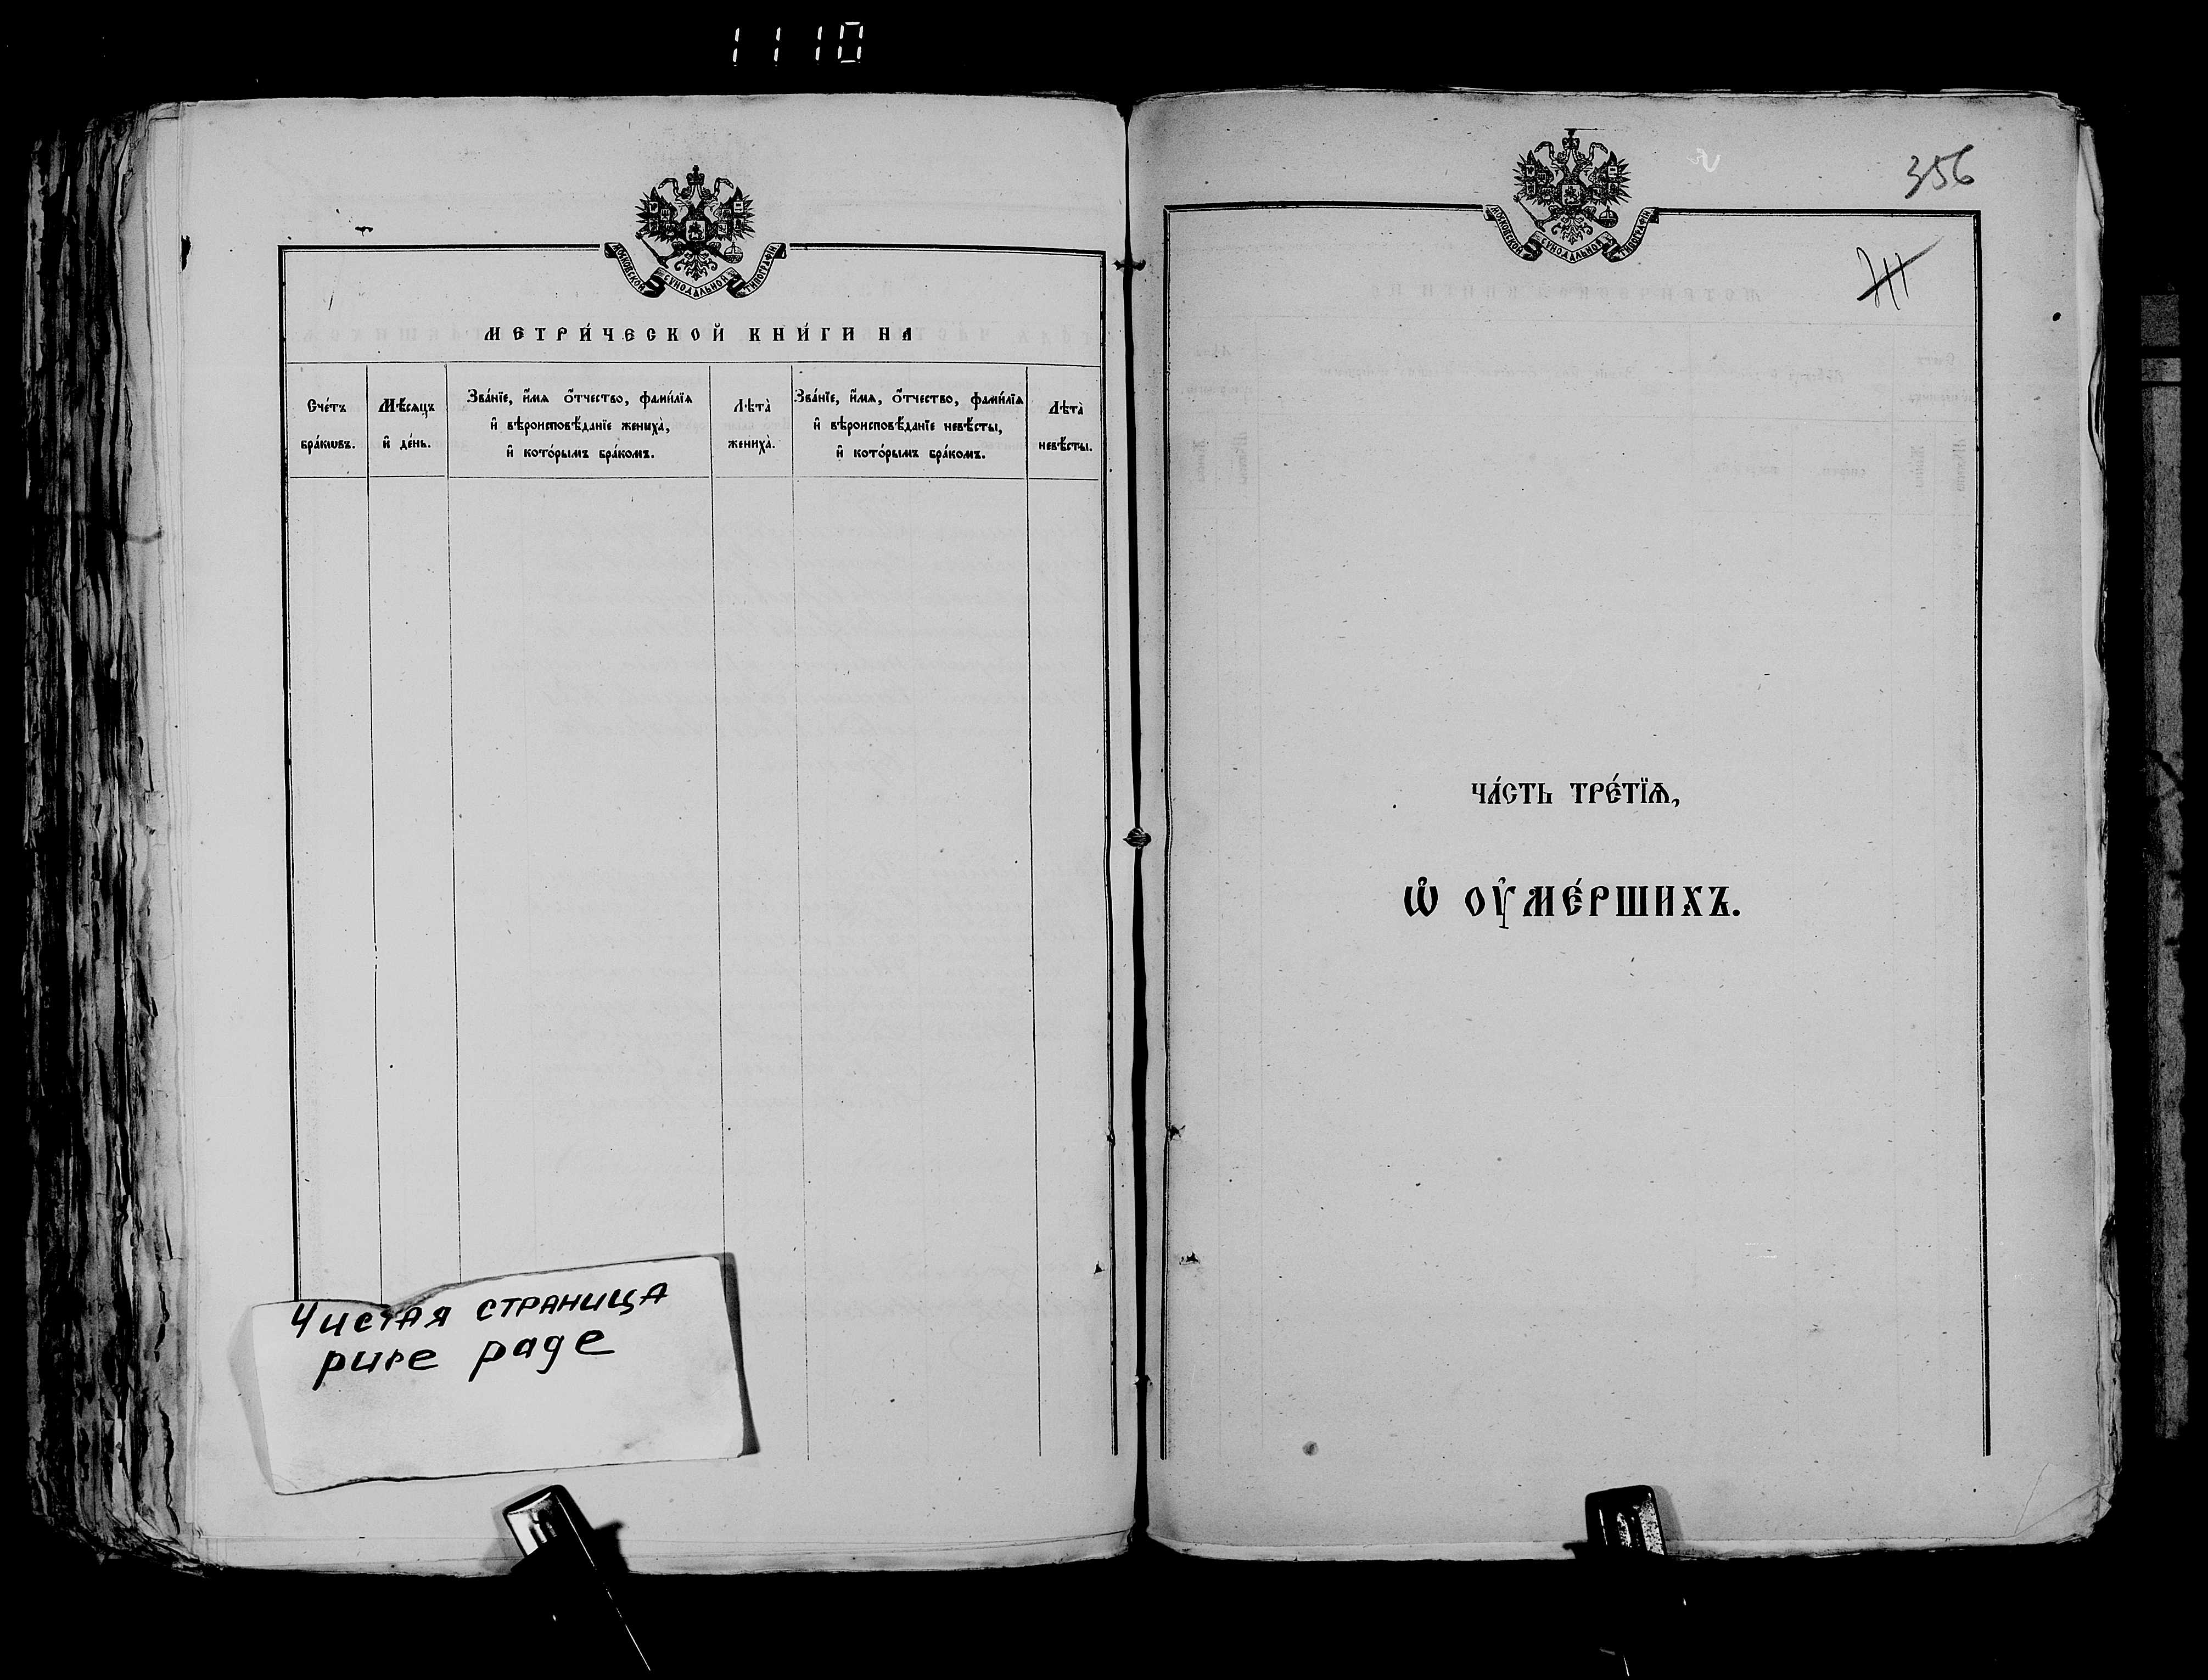 1110
МОСКОВСКОЙ СѴНОДАЛЬНОЙ ТИПОГРАФІИ
МЕТРИ́ЧЕСКОЙ КНИ́ГИ НА
Сче́тъ
бра́кѡвъ.
Мѣ́сяцъ
и҆ де́нь.
Зва́нїе, и҆́мѧ ѻ҆́тчество, фами́лїѧ
и҆ вѣроисповѣ́данїе жениха̀,
и҆ кото́рымъ бра́комъ.
Лѣта̀
жениха̀.
Зва́нїе, и҆́мѧ, ѻ҆́тчество, фами́лїѧ
и҆ вѣроисповѣ́данїе невѣ́сты,
и҆ кото́рымъ бра́комъ.
Лѣта̀
невѣ́сты.
Чистая страница
pure page
356
МОСКОВСКОЙ СѴНОДАЛЬНОЙ ТИПОГРАФІИ
ЧА́СТЬ ТРЕ́ТЇѦ,
Ѡ҆ ОУ҆МЕ́РШИХЪ.